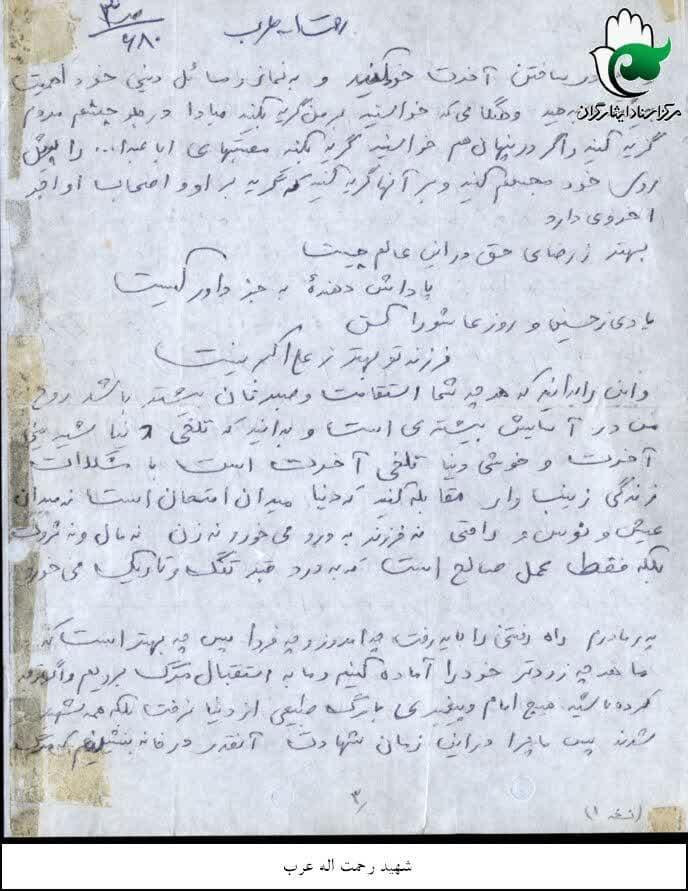 رحمت ا... عرب
ص ۳
۶۸۰
مرکز اسناد ایثارگران
در ساختن آخرت خود کنید و به نماز و مسائل دینی خود اهمیت
دهید وهنگامی که خواستید بر من گریه بکنید مبادا در جلو چشم مردم
گریه کنید و اگر در پنهان هم خواستید گریه بکنید مصیبتهای ابا عبدا... را پیش
روی خود مجسم کنید و بر آنها گریه کنید که گریه بر او و اصحاب او اجر
اخروی دارد
بهتر ز رضای حق در این عالم چیست
پاداش دهندهٔ به جز داور کیست
یادی ز حسین و روز عاشورا کن
فرزند تو بهتر ز علی اکبر نیست
و این را بدانید که هر چه شما استقامت و صبرتان بیشتر باشد روح
من در آسایش بیشتری است و بدانید که تلخی دنیا شیرینی
آخرت و خوشی دنیا تلخی آخرت است با مشکلات
زندگی زینب وار مقابله کنید که دنیا میدان امتحان است نه میدان
عیش و نوش و راحتی نه فرزند به درد می خورد نه زن نه مال و نه ثروت
بلکه فقط عمل صالح است که به درد قبر تنگ و تاریک می خورد
پدر مادرم راه رفتنی را باید رفت چه امروز و چه فردا پس چه بهتر است که
ما هر چه زودتر خود را آماده کنیم و ما به استقبال مرگ برویم و اگر
کرده باشید هیچ امام و پیغمبری با مرگ طبیعی از دنیا نرفت بلکه همه شهید
شدند پس ما چرا در این زمان شهادت آنقدر در خانه بنشینیم که مرگ
۳
(نسخه ۱)
شهید رحمت اله عرب